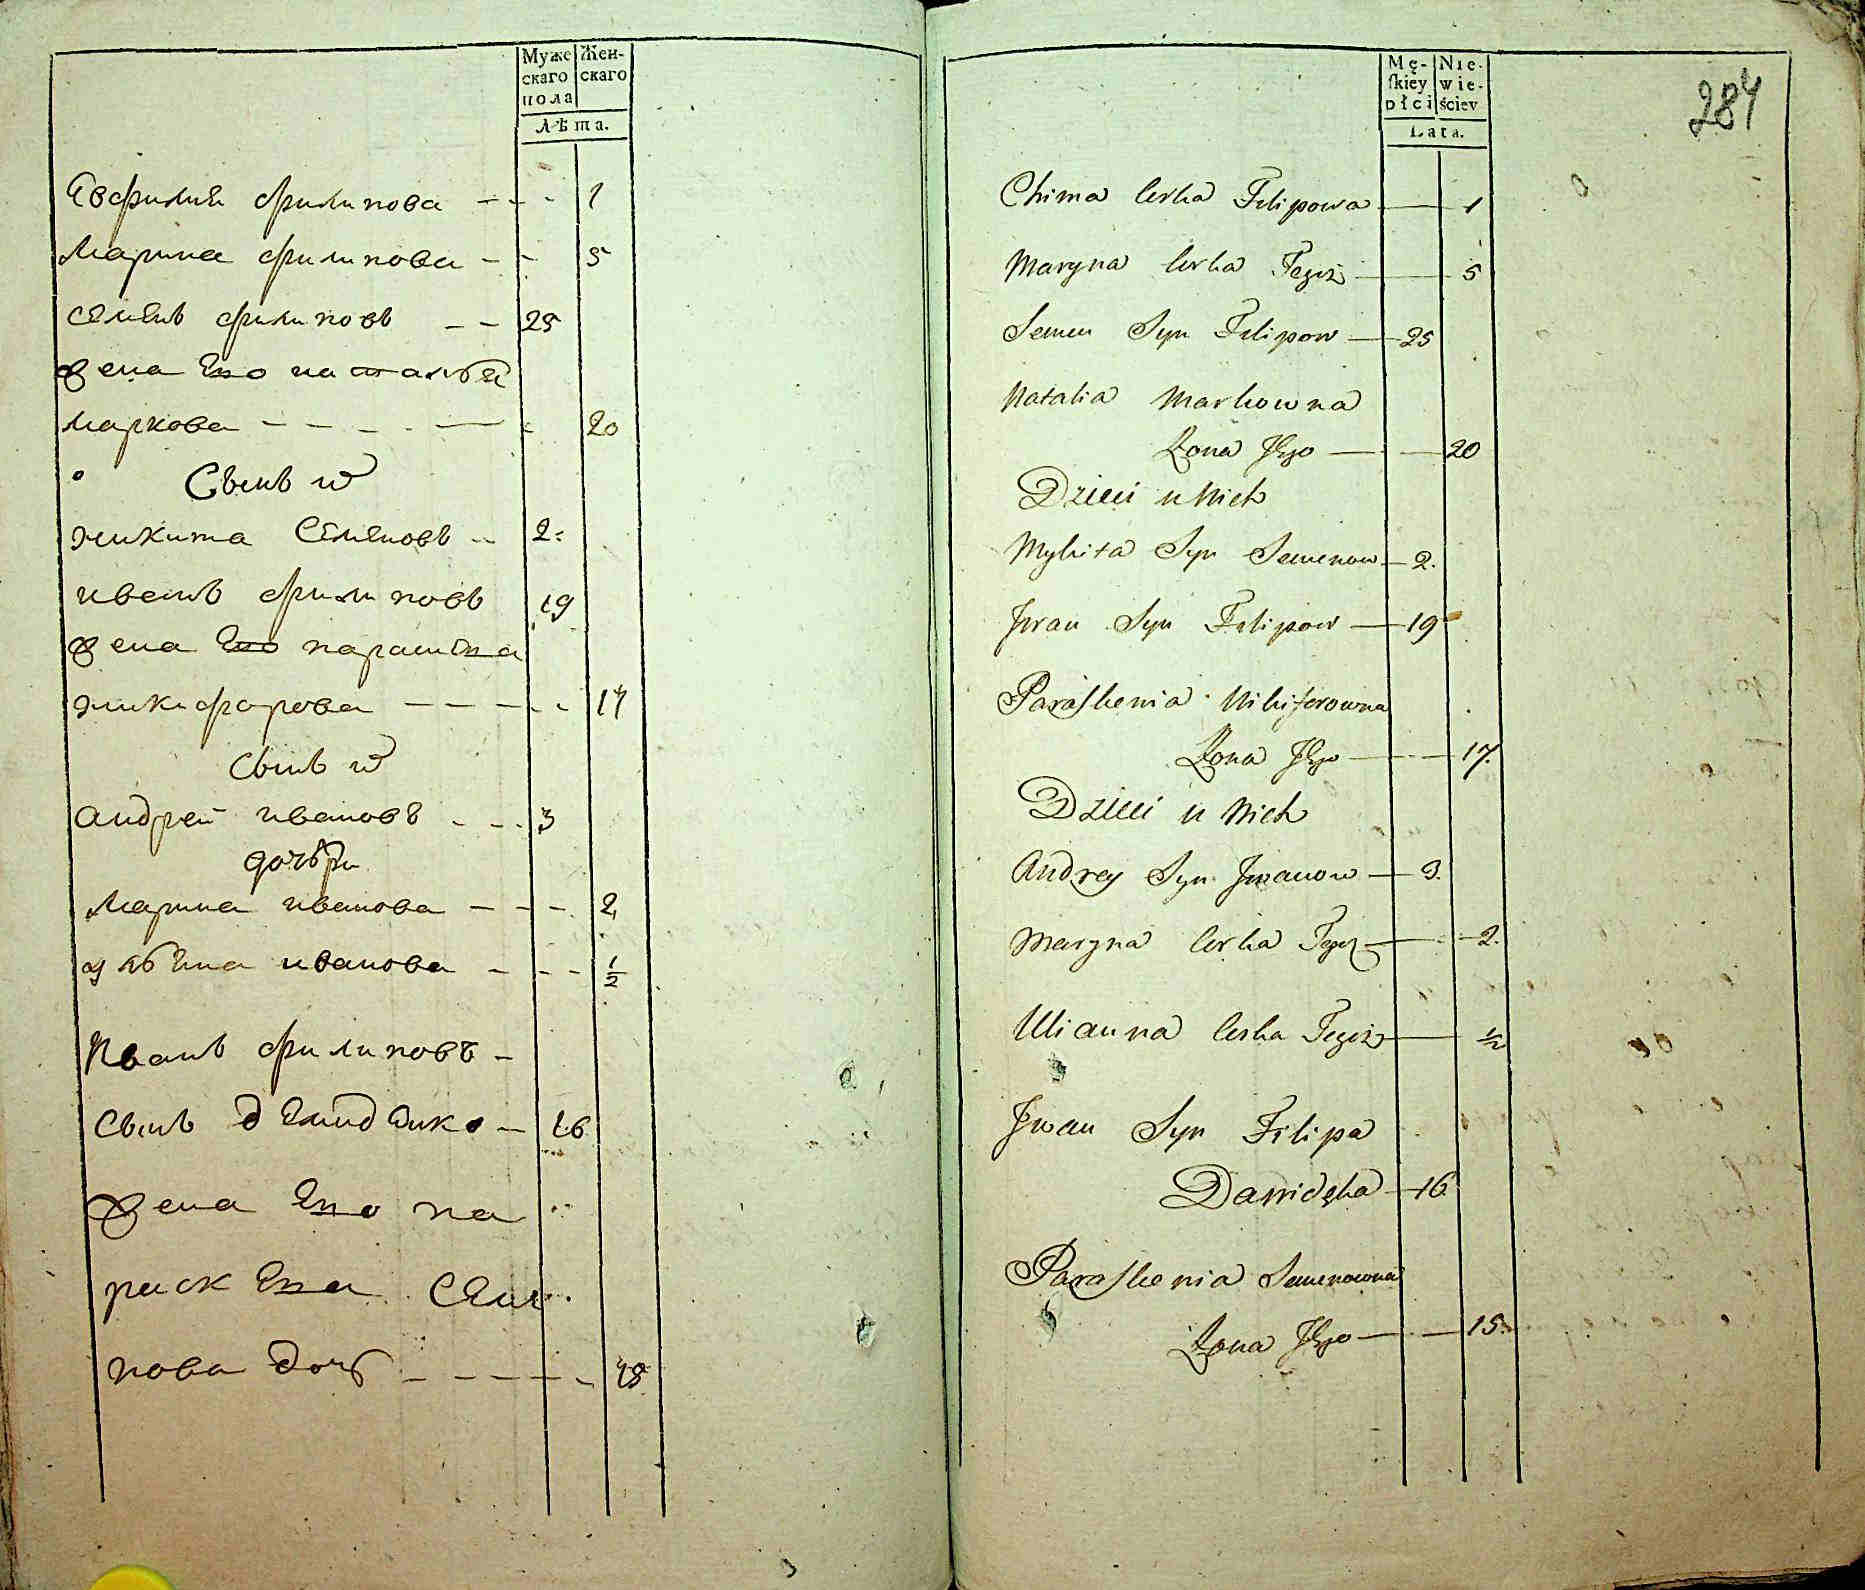 Муже Жен-
скаго скаго
пола
Лѣта.
Евфимия филипова - - - 1
Марина филипова - - 5
семенъ филиповъ - - 25
жена Его наталья
маркова - - - - - 20
Сынъ ихъ
никита Семеновъ - 2.
иванъ филиповъ 19
жена Его
никифорова - - - - - 17
сынъ ихъ
андрей ивановъ - - - 3
дочѣри
Марина иванова - - - 2
иванова - - - 1/2
Иванъ филиповъ -
сынъ - 16
жена Его па
раск семе
нова дочь - - - - - 15
284
Mę- Nie-
skiey wie-
płci ściey
Lata.
Chima Corka Filipowa — 1
Maryna Corka Tegoż — 5
Semen Syn Filipow — 25
Natalia Markowna
Żona Jego — 20
Dzieci u Nich
Mykita Syn Semenow — 2.
Jwan Syn Filipow — 19
Paraskenia Nikiforowna
Żona Jego — 17.
Dzieci u Nich
Andrey Syn Jwanow — 3.
Maryna Corka Tegoż — 2.
Ulianna Corka Tegoż — 1/2
Jwan Syn Filipa
— 16
Paraskenia Semenowna
Żona Jego — 15.